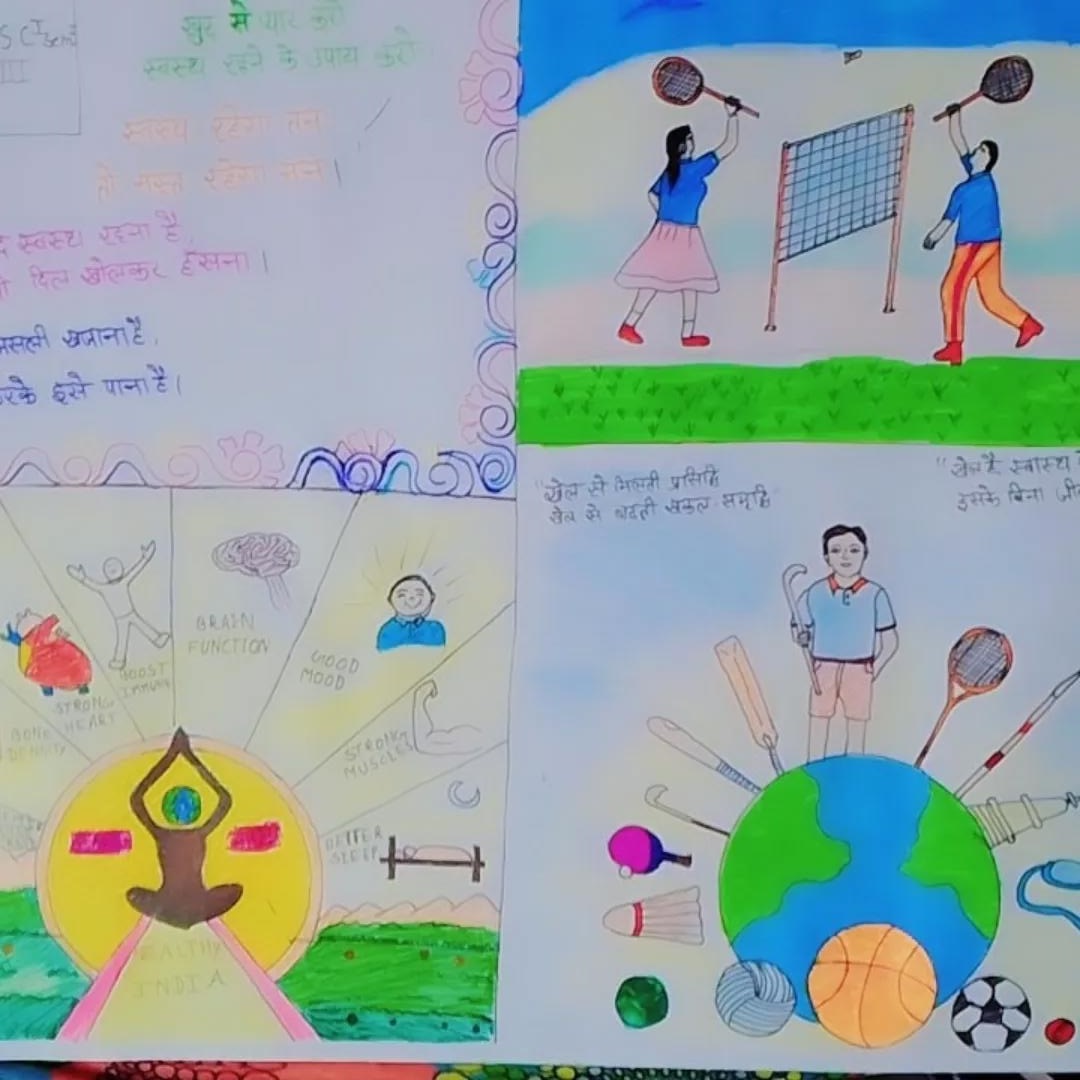 S C I Sem
III
खुद से प्यार करो
स्वस्थ रहने के उपाय करो
स्वस्थ रहेगा तन
तो मस्त रहेगा मन।
स्वस्थ रहना है
दिल खोलकर हँसना।
असली खजाना है,
करके इसे पाना है।
"खेल से मिलती प्रसिद्धि
खेल से बढ़ती सकल समृद्धि"
"खेल है स्वास्थ्य
इसके बिना
BRAIN
FUNCTION
GOOD
MOOD
BOOST
IMMUNE
STRONG
HEART
BONE
DENSITY
STRONG
MUSCLES
BETTER
SLEEP
HEALTHY
INDIA